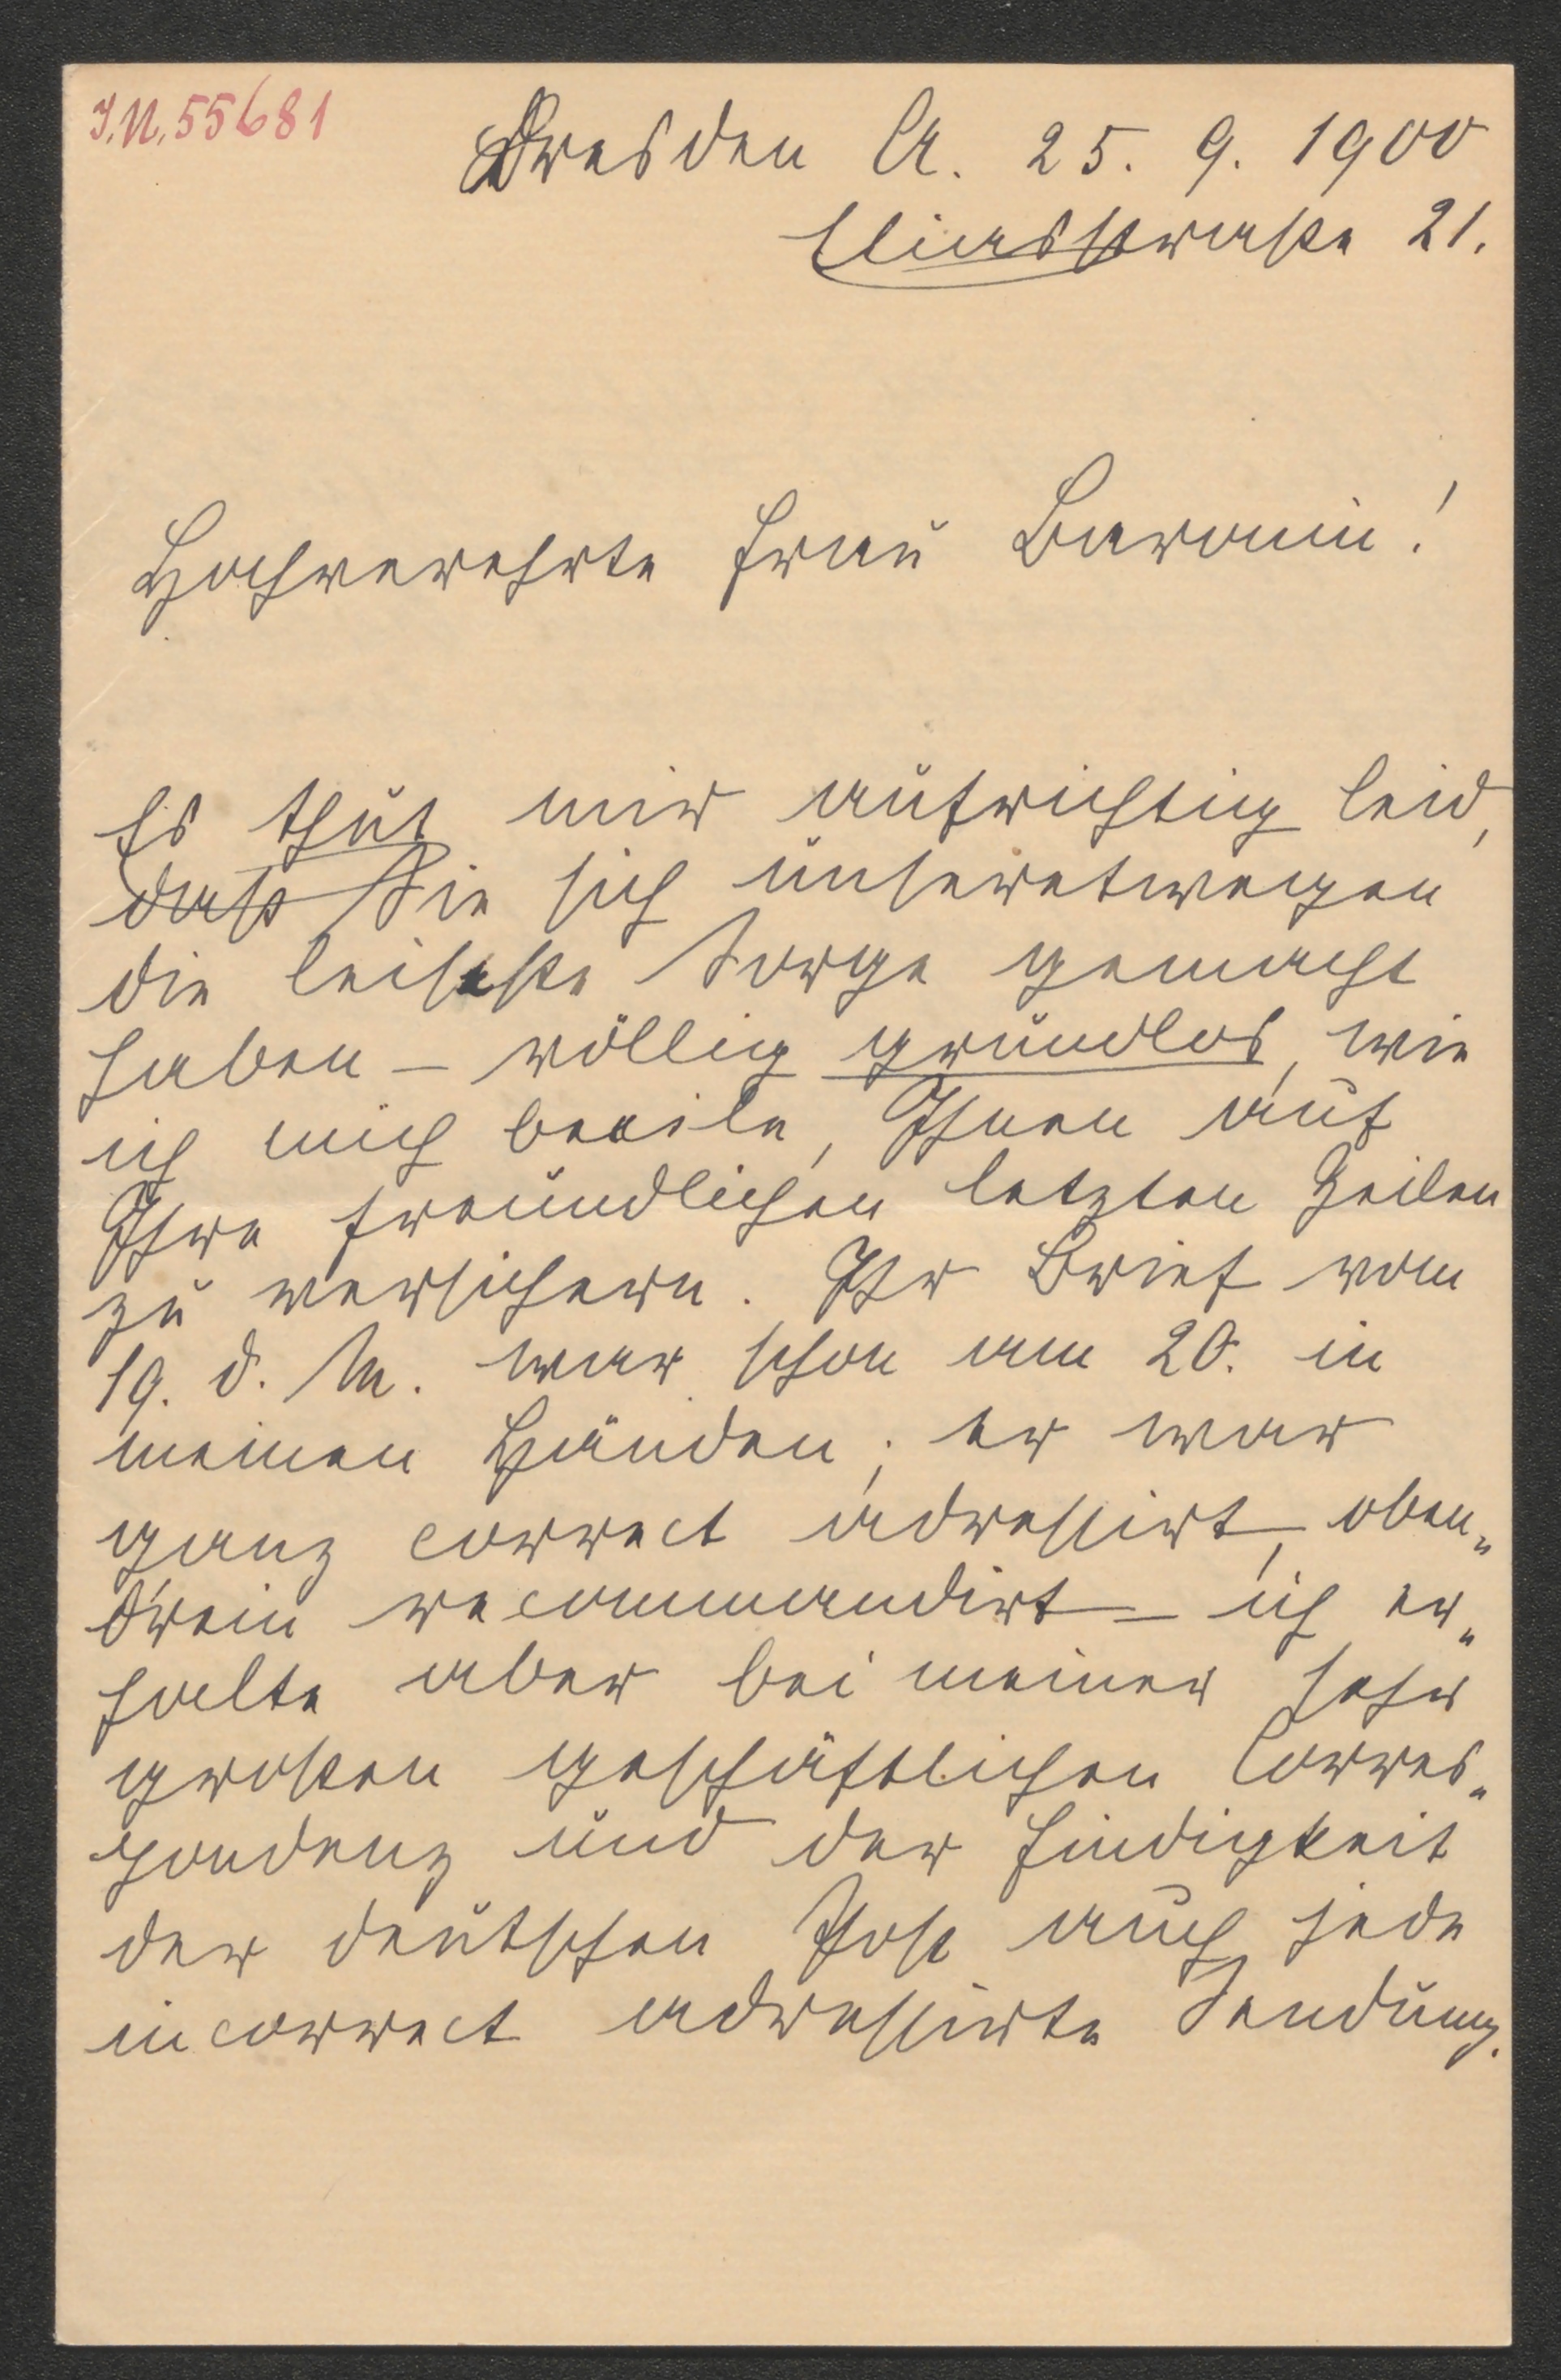 I.N. 55681
Dresden A. 25. 9. 1900
Eliasstraße 21.
Hochverehrte Frau Baronin!
Es thut mir aufrichtig leid,
dass Sie sich unseretwegen
die leiseste Sorge gemacht
haben – völlig grundlos, wie
ich mich beeile, Ihnen auf
Ihre freundlichen letzten Zeilen
zu versichern. Ihr Brief vom
19. d. M. war schon am 20. in
meinen Händen; er war
ganz correct adressirt, oben„
drein recommandirt – ich er„
halte aber bei meiner sehr
großen geschäftlichen Corres„
pondenz und der Findigkeit
der deutschen Post auch jede
incorrect adressirte Sendung.